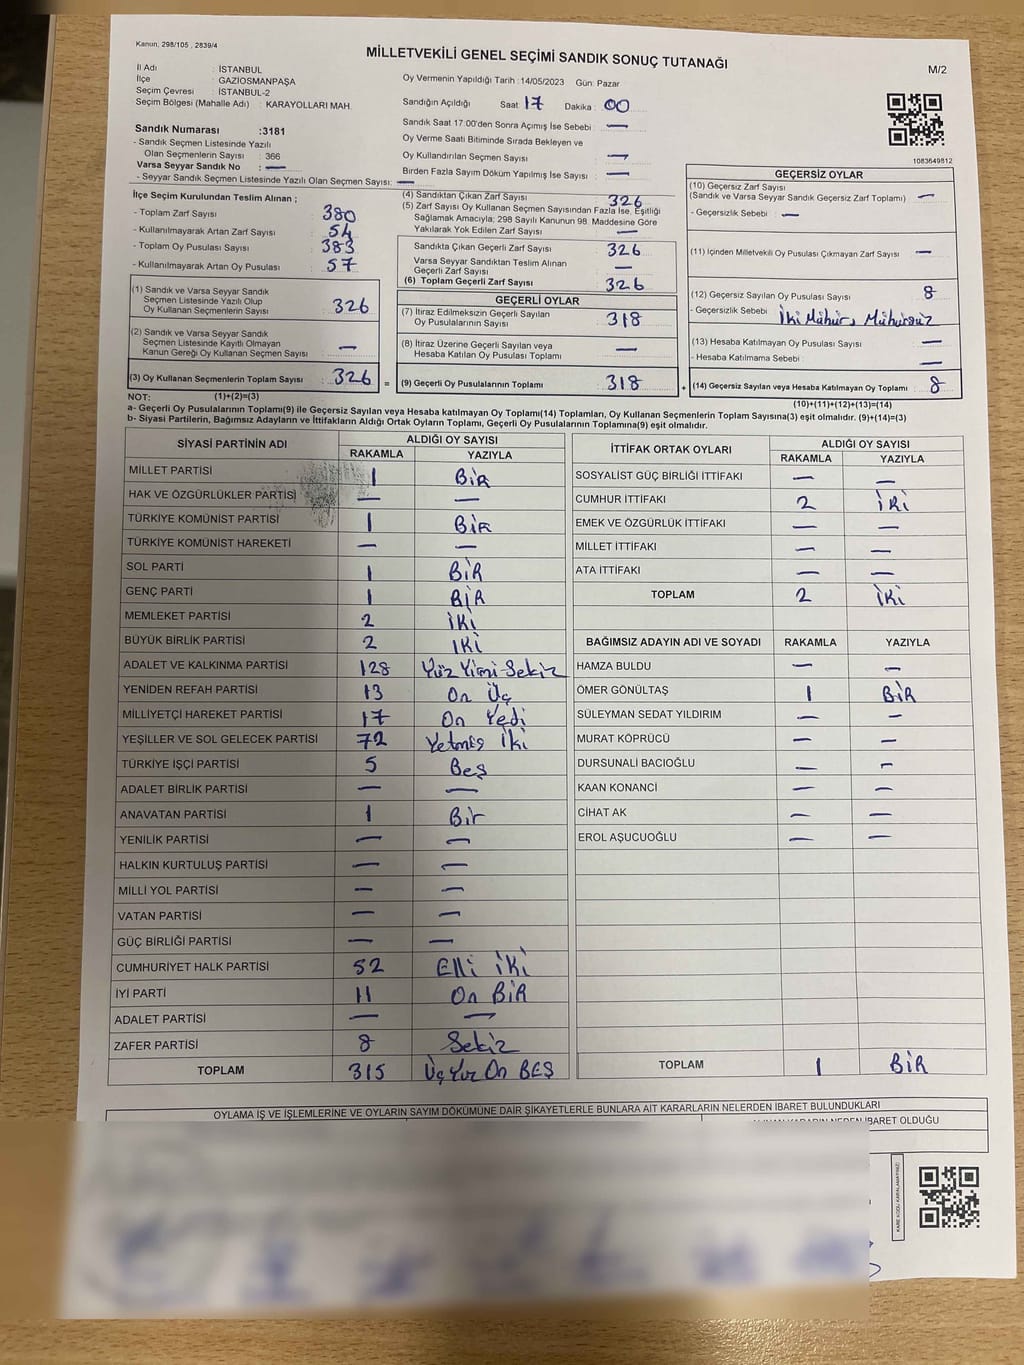 Kanun, 298/105 , 2839/4
MİLLETVEKİLİ GENEL SEÇİMİ SANDIK SONUÇ TUTANAĞI
M/2
İl Adı : İSTANBUL
İlçe : GAZİOSMANPAŞA
Seçim Çevresi : İSTANBUL-2
Seçim Bölgesi (Mahalle Adı) : KARAYOLLARI MAH.
Sandık Numarası :3181
- Sandık Seçmen Listesinde Yazılı
Olan Seçmenlerin Sayısı : 366
Varsa Seyyar Sandık No : —
- Seyyar Sandık Seçmen Listesinde Yazılı Olan Seçmen Sayısı: —
Oy Vermenin Yapıldığı Tarih :14/05/2023 Gün: Pazar
Sandığın Açıldığı Saat 17 Dakika : 00
Sandık Saat 17:00'den Sonra Açımış İse Sebebi : —
Oy Verme Saati Bitiminde Sırada Bekleyen ve
Oy Kullandırılan Seçmen Sayısı : —
Birden Fazla Sayım Döküm Yapılmış İse Sayısı : —
1083649812
İlçe Seçim Kurulundan Teslim Alınan ;
- Toplam Zarf Sayısı : 380
- Kullanılmayarak Artan Zarf Sayısı : 54
- Toplam Oy Pusulası Sayısı : 383
- Kullanılmayarak Artan Oy Pusulası : 57
(1) Sandık ve Varsa Seyyar Sandık
Seçmen Listesinde Yazılı Olup
Oy Kullanan Seçmenlerin Sayısı : 326
(2) Sandık ve Varsa Seyyar Sandık
Seçmen Listesinde Kayıtlı Olmayan
Kanun Gereği Oy Kullanan Seçmen Sayısı : —
(3) Oy Kullanan Seçmenlerin Toplam Sayısı : 326 =
(4) Sandıktan Çıkan Zarf Sayısı : 326
(5) Zarf Sayısı Oy Kullanan Seçmen Sayısından Fazla İse, Eşitliği
Sağlamak Amacıyla; 298 Sayılı Kanunun 98. Maddesine Göre
Yakılarak Yok Edilen Zarf Sayısı : —
Sandıkta Çıkan Geçerli Zarf Sayısı : 326
Varsa Seyyar Sandıktan Teslim Alınan
Geçerli Zarf Sayısı : —
(6) Toplam Geçerli Zarf Sayısı : 326
GEÇERLİ OYLAR
(7) İtiraz Edilmeksizin Geçerli Sayılan
Oy Pusulalarının Sayısı : 318
(8) İtiraz Üzerine Geçerli Sayılan veya
Hesaba Katılan Oy Pusulası Toplamı : —
(9) Geçerli Oy Pusulalarının Toplamı : 318 +
GEÇERSİZ OYLAR
(10) Geçersiz Zarf Sayısı
(Sandık ve Varsa Seyyar Sandık Geçersiz Zarf Toplamı) : —
- Geçersizlik Sebebi : —
(11) İçinden Milletvekili Oy Pusulası Çıkmayan Zarf Sayısı : —
(12) Geçersiz Sayılan Oy Pusulası Sayısı : 8
- Geçersizlik Sebebi : İki Mühür, Mühürsüz
(13) Hesaba Katılmayan Oy Pusulası Sayısı : —
- Hesaba Katılmama Sebebi : —
(14) Geçersiz Sayılan veya Hesaba Katılmayan Oy Toplamı : 8
NOT: (1)+(2)=(3)
(10)+(11)+(12)+(13)=(14)
a- Geçerli Oy Pusulalarının Toplamı(9) ile Geçersiz Sayılan veya Hesaba katılmayan Oy Toplamı(14) Toplamları, Oy Kullanan Seçmenlerin Toplam Sayısına(3) eşit olmalıdır. (9)+(14)=(3)
b- Siyasi Partilerin, Bağımsız Adayların ve İttifakların Aldığı Ortak Oyların Toplamı, Geçerli Oy Pusulalarının Toplamına(9) eşit olmalıdır.
SİYASİ PARTİNİN ADI ALDIĞI OY SAYISI
RAKAMLA YAZIYLA
MİLLET PARTİSİ 1 BİR
HAK VE ÖZGÜRLÜKLER PARTİSİ — —
TÜRKİYE KOMÜNİST PARTİSİ 1 BİR
TÜRKİYE KOMÜNİST HAREKETİ — —
SOL PARTİ 1 BİR
GENÇ PARTİ 1 BİR
MEMLEKET PARTİSİ 2 İKİ
BÜYÜK BİRLİK PARTİSİ 2 IKİ
ADALET VE KALKINMA PARTİSİ 128 Yüz Yirmi Sekiz
YENİDEN REFAH PARTİSİ 13 On Üç
MİLLİYETÇİ HAREKET PARTİSİ 17 On Yedi
YEŞİLLER VE SOL GELECEK PARTİSİ 72 Yetmiş İki
TÜRKİYE İŞÇİ PARTİSİ 5 Beş
ADALET BİRLİK PARTİSİ — —
ANAVATAN PARTİSİ 1 Bir
YENİLİK PARTİSİ — —
HALKIN KURTULUŞ PARTİSİ — —
MİLLİ YOL PARTİSİ — —
VATAN PARTİSİ — —
GÜÇ BİRLİĞİ PARTİSİ — —
CUMHURİYET HALK PARTİSİ 52 Elli İKİ
İYİ PARTİ 11 On BİR
ADALET PARTİSİ — —
ZAFER PARTİSİ 8 Sekiz
TOPLAM 315 Üç Yüz On BEŞ
İTTİFAK ORTAK OYLARI ALDIĞI OY SAYISI
RAKAMLA YAZIYLA
SOSYALİST GÜÇ BİRLİĞİ İTTİFAKI — —
CUMHUR İTTİFAKI 2 İKİ
EMEK VE ÖZGÜRLÜK İTTİFAKI — —
MİLLET İTTİFAKI — —
ATA İTTİFAKI — —
TOPLAM 2 İKİ
BAĞIMSIZ ADAYIN ADI VE SOYADI RAKAMLA YAZIYLA
HAMZA BULDU — —
ÖMER GÖNÜLTAŞ 1 BİR
SÜLEYMAN SEDAT YILDIRIM — —
MURAT KÖPRÜCÜ — —
DURSUNALİ BACIOĞLU — —
KAAN KONANCİ — —
CİHAT AK — —
EROL AŞUCUOĞLU — —
TOPLAM 1 BİR
OYLAMA İŞ VE İŞLEMLERİNE VE OYLARIN SAYIM DÖKÜMÜNE DAİR ŞİKAYETLERLE BUNLARA AİT KARARLARIN NELERDEN İBARET BULUNDUKLARI
İBARET OLDUĞU
KARE KODU KARALAMAYINIZ